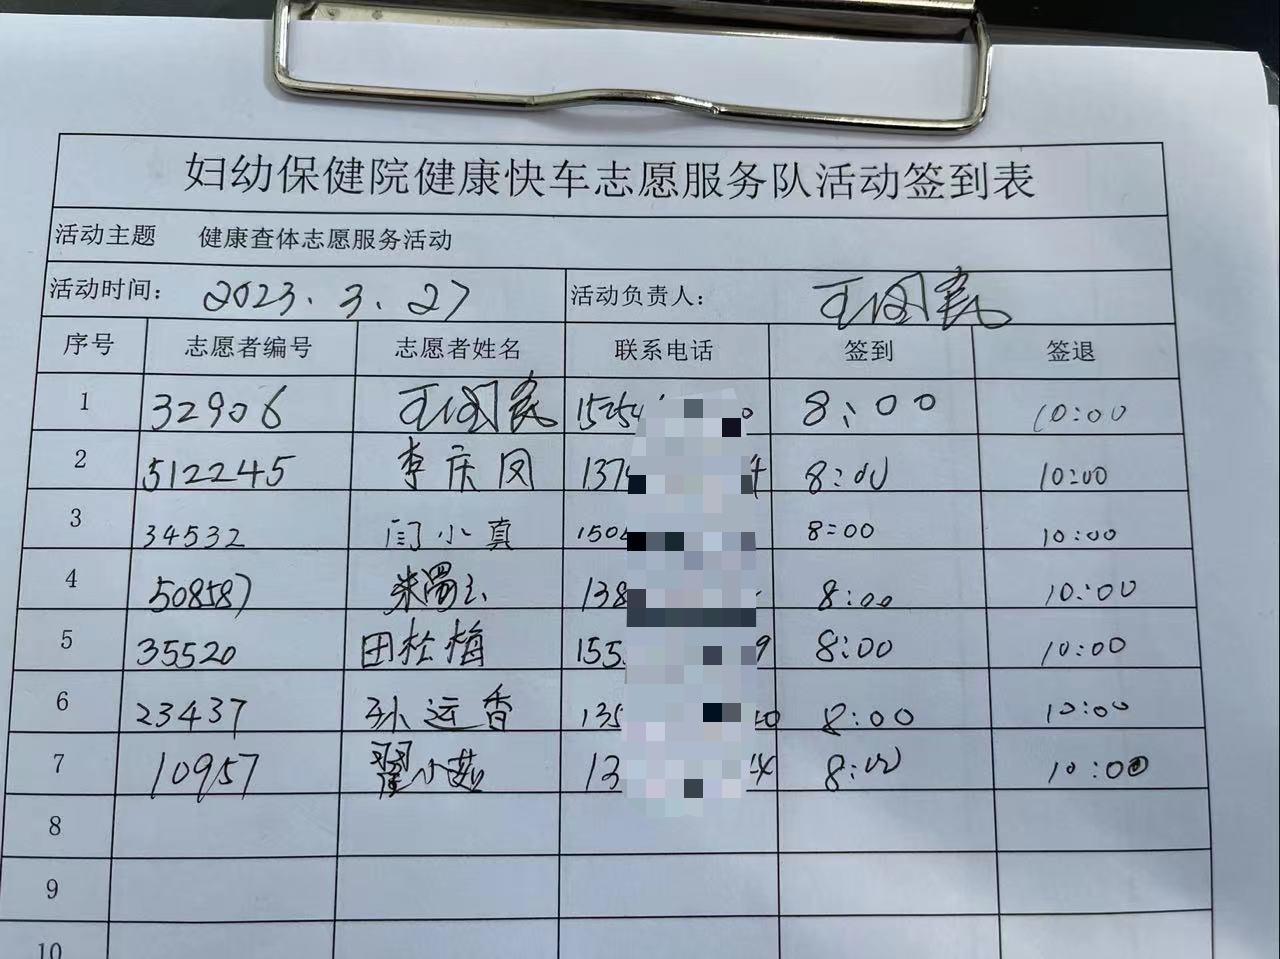 妇幼保健院健康快车志愿服务队活动签到表
活动主题 健康查体志愿服务活动
活动时间： 2023.3.27 活动负责人： 王国
序号 志愿者编号 志愿者姓名 联系电话 签到 签退
1 32906 王国 15254 0 8:00 10:00
2 512245 李庆凤 137 4 8:00 10:00
3 34532 闫小真 150 8:00 10:00
4 508587 朱 玉 138 8:00 10:00
5 35520 田松梅 155 9 8:00 10:00
6 23437 孙远香 135 0 8:00 10:00
7 10957 翟小茹 13 4 8:00 10:00
8
9
10